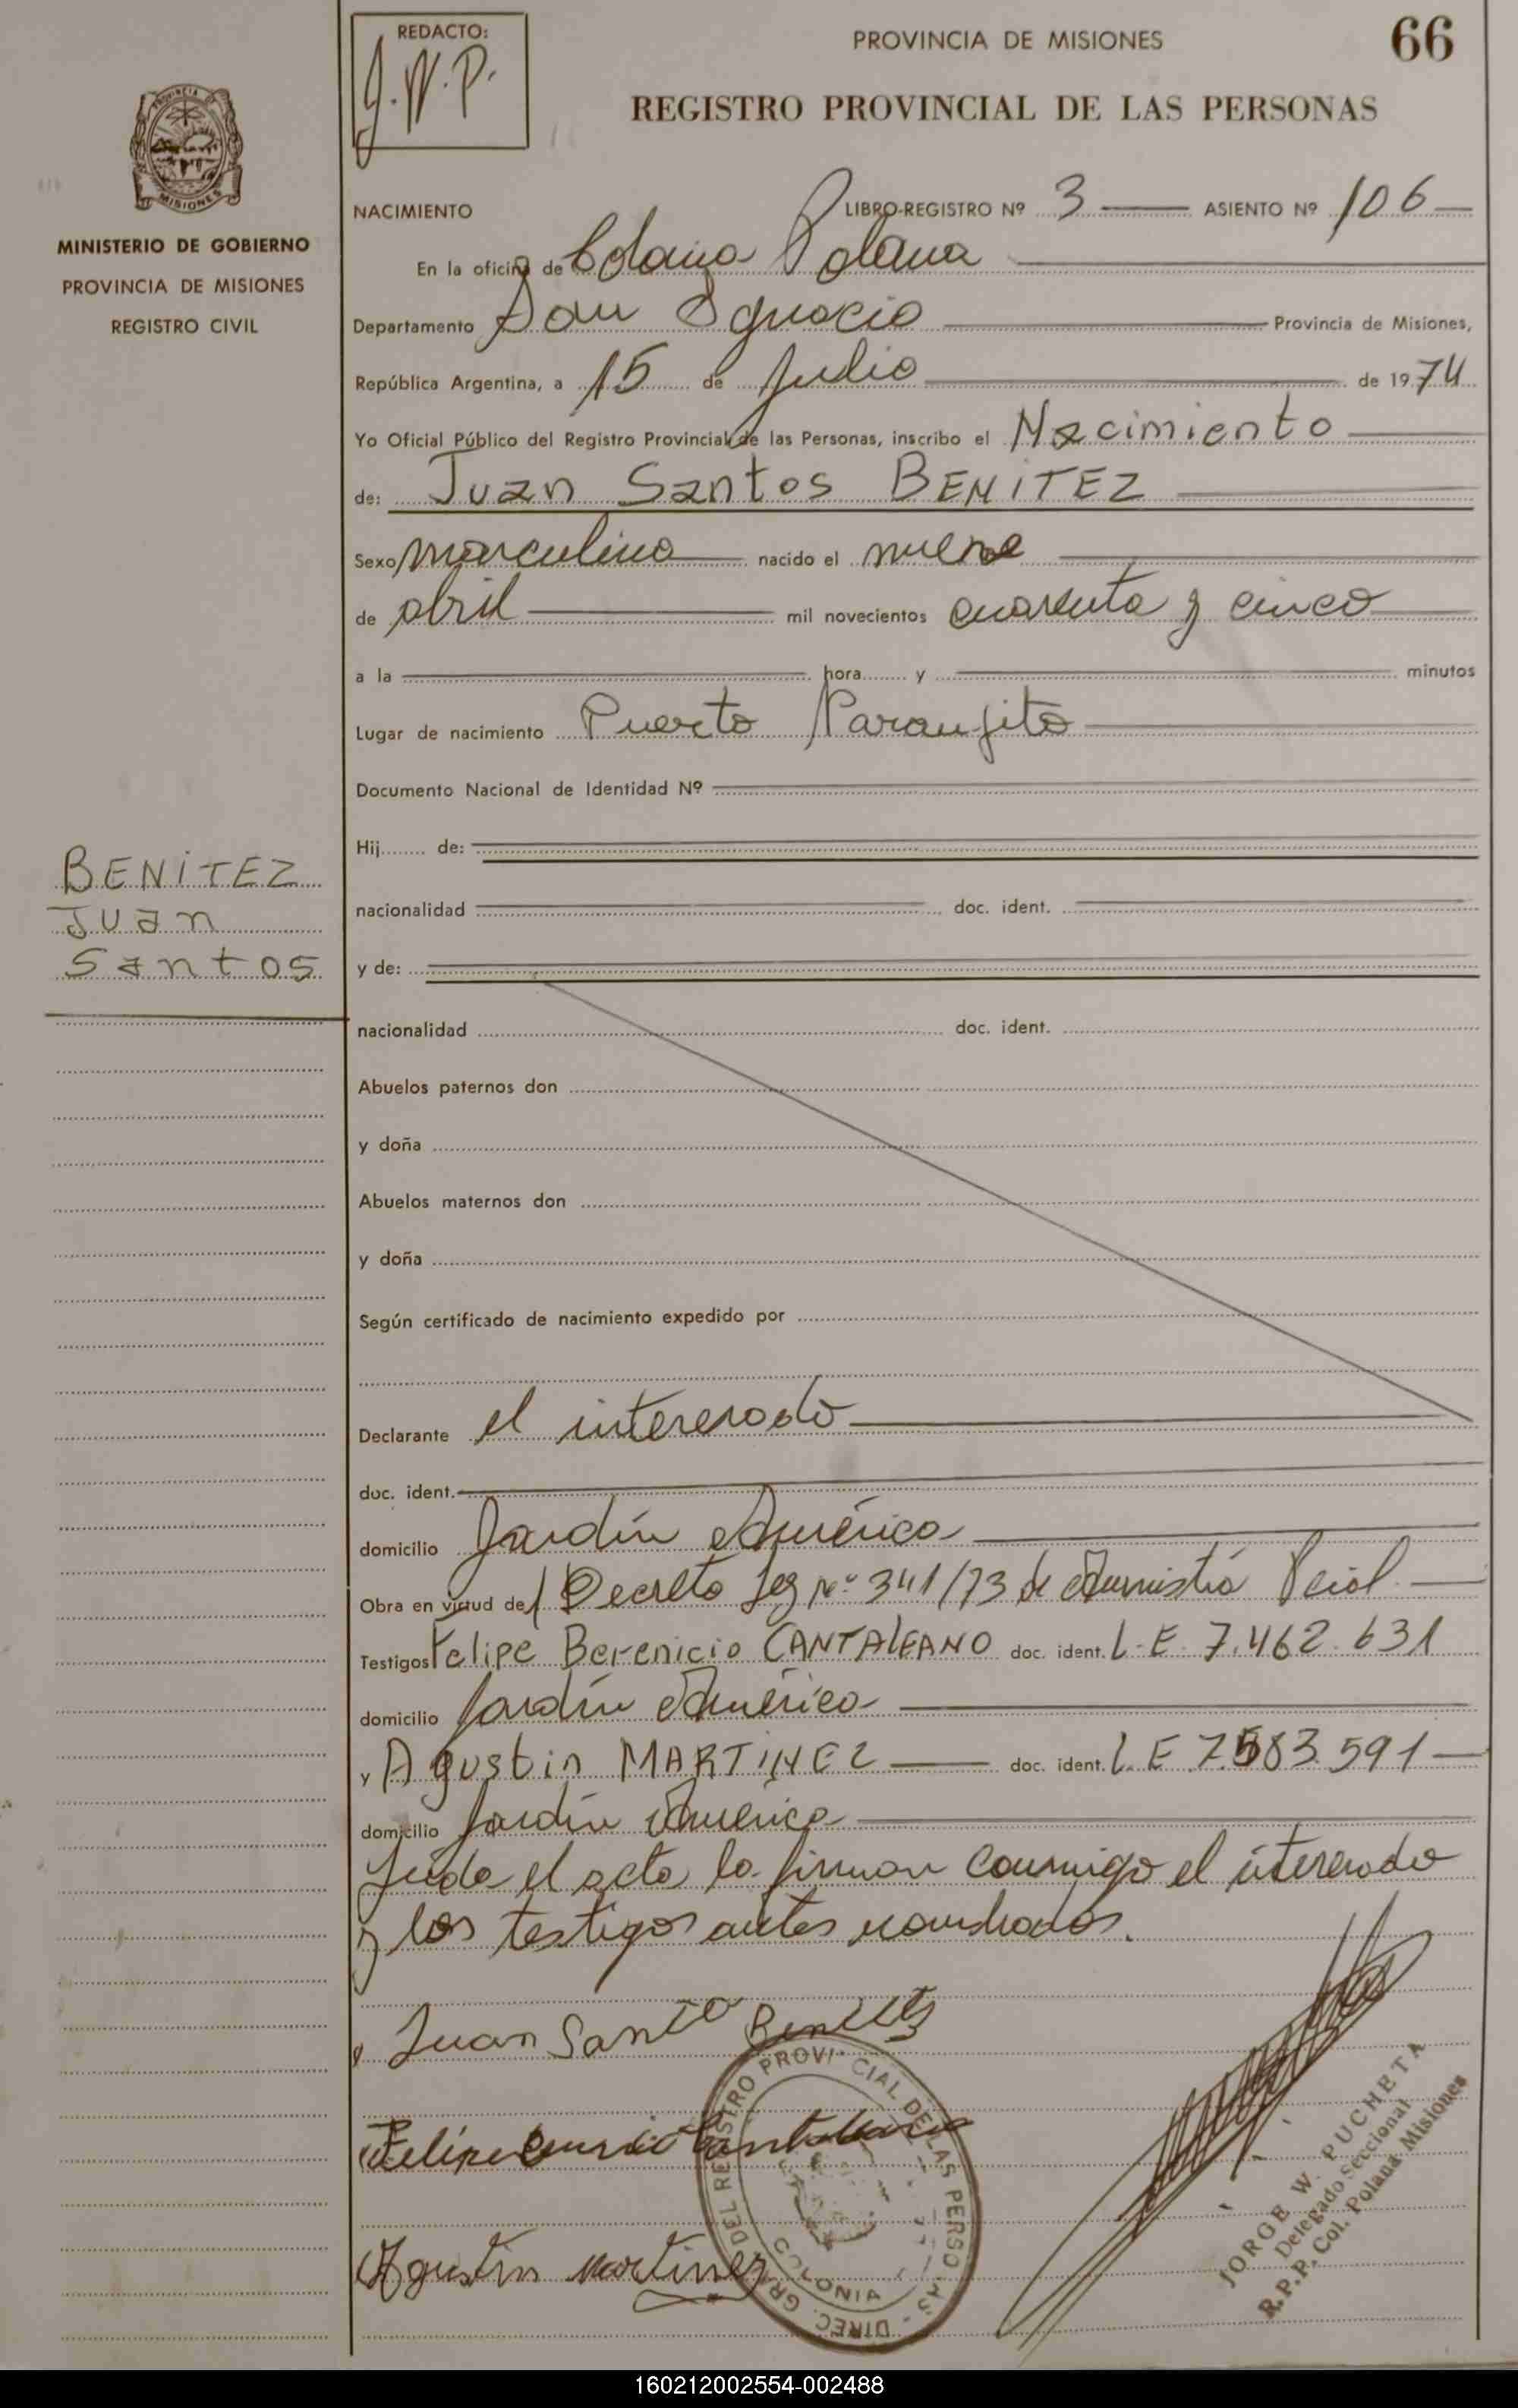 REDACTO:
J.W.P.
PROVINCIA DE MISIONES
66
REGISTRO PROVINCIAL DE LAS PERSONAS
MISIONES
MINISTERIO DE GOBIERNO
PROVINCIA DE MISIONES
REGISTRO CIVIL
NACIMIENTO LIBRO-REGISTRO Nº 3 ASIENTO Nº 106
En la oficina de Colonia Polana
Departamento San Ignacio Provincia de Misiones,
República Argentina, a 15 de Julio de 1974
Yo Oficial Público del Registro Provincial de las Personas, inscribo el Nacimiento
de: Juan Santos BENITEZ
Sexo masculino nacido el nueve
de abril mil novecientos cuarenta y cinco
a la hora y minutos
Lugar de nacimiento Puerto Naranjito
Documento Nacional de Identidad Nº
Hij de:
BENITEZ
Juan
Santos
nacionalidad doc. ident.
y de:
nacionalidad doc. ident.
Abuelos paternos don
y doña
Abuelos maternos don
y doña
Según certificado de nacimiento expedido por
Declarante el interesado
doc. ident.
domicilio Jardín América
Obra en virtud del Decreto Ley Nº 341/73 de Amnistía Pcial.
Testigos Felipe Berenicio CANTALEANO doc. ident. L.E. 7.462.631
domicilio Jardín América
y Agustin MARTINEZ doc. ident. L.E 7.583.591
domicilio Jardín América
Leída el acta la firman conmigo el interesado
y los testigos antes nombrados.
Juan Santo Benitez
Felipe Cantaleano
Agustin Martinez
DIREC. GRAL. DEL REGISTRO PROVINCIAL DE LAS PERSONAS
COLONIA
JORGE W. PUCHETA
Delegado Seccional
R.P.P. Col. Polana-Misiones
160212002554-002488